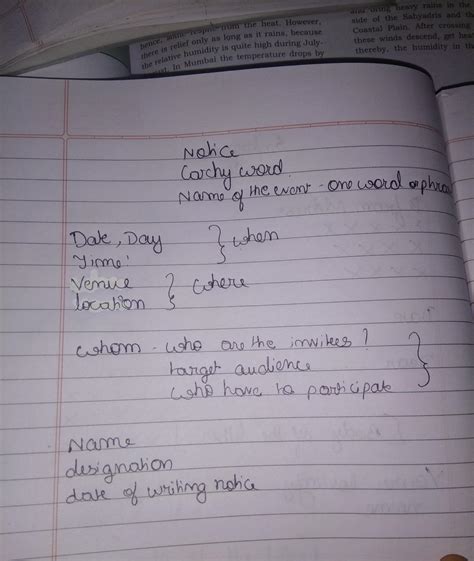 hence, some respite from the heat. However,
there is relief only as long as it rains, because
the relative humidity is quite high during July-
In Mumbai the temperature drops by
and bring heavy rains in the
side of the Sahyadris and
Coastal) Plain. After crossing
these winds descend, get
thereby, the humidity in
Notice
Catchy word
Name of the event - one word or phrase
Date, Day } when
Time!
Venue } where
location
whom - who are the invitees?
target audience }
who have to participate
Name
designation
date of writing notice